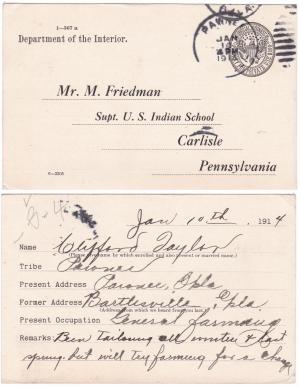 1-567 a
Department of the Interior.
PAWNEE
JAN
10
PM
19
Mr. M. Friedman
Supt. U. S. Indian School
Carlisle
Pennsylvania
Jan 10th, 1914
Name Clifford Taylor
(Please give name by which enrolled and also present or married name.)
Tribe Pawnee
Present Address Pawnee, Okla.
Former Address Bartlesville, Okla.
(Address from which we heard from you last.)
Present Occupation General farming
Remarks: Been Tailoring all winter & last
spring. but will try farming for a change